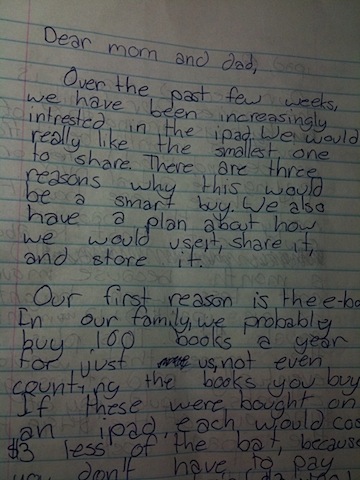 Dear mom and dad,
Over the past few weeks,
we have been increasingly
intrested in the ipad. We would
really like the smallest one
to share. There are three
reasons why this would
be a smart buy. We also
have a plan about how
we would use it, share it,
and store it.
Our first reason is the e-bo
In our family, we probably
buy 100 books a year
for just us, not even
counting the books you buy
If these were bought on
an ipad, each would cos
$3 less of the bat, because
you don't have to pay